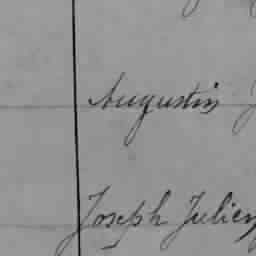 Augustin
Joseph Julien